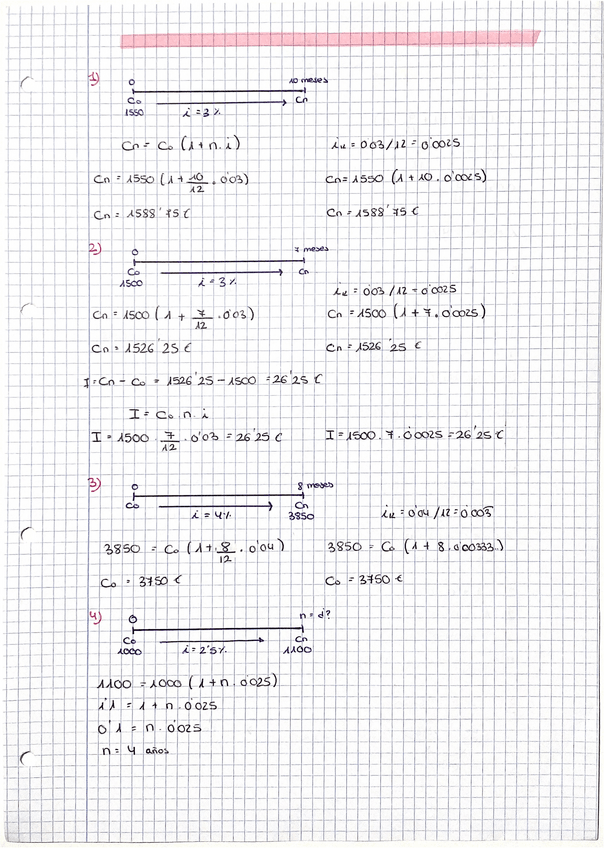 1)
0 10 meses
Co Cn
1550 i = 3%
Cn = Co (1+n.i) i12 = 0'03/12 = 0'0025
Cn = 1550 (1 + 10/12 . 0'03) Cn = 1550 (1 + 10 . 0'0025)
Cn = 1588'75 € Cn = 1588'75 €
2)
0 7 meses
Co Cn
1500 i = 3%
i12 = 0'03/12 = 0'0025
Cn = 1500 (1 + 7/12 . 0'03) Cn = 1500 (1 + 7 . 0'0025)
Cn = 1526'25 € Cn = 1526'25 €
I = Cn - Co = 1526'25 - 1500 = 26'25 €
I = Co . n . i
I = 1500 . 7/12 . 0'03 = 26'25 € I = 1500 . 7 . 0'0025 = 26'25 €
3)
0 8 meses
Co Cn
i = 4% 3850
i12 = 0'04/12 = 0'003
3850 = Co (1 + 8/12 . 0'04) 3850 = Co (1 + 8 . 0'00333..)
Co = 3750 € Co = 3750 €
4)
0 n = ¿?
Co Cn
1000 i = 2'5% 1100
1100 = 1000 (1 + n . 0'025)
1'1 = 1 + n . 0'025
0'1 = n . 0'025
n = 4 años